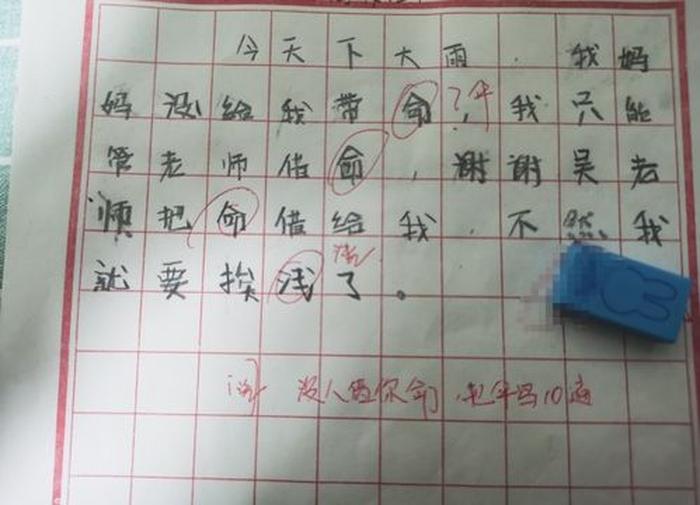 今天下大雨,我妈
妈没给我带命,?伞 我只能
管老师借命,谢谢吴老
师把命借给我,不然我
就要挨浅了。
没人要你命,把伞写10遍